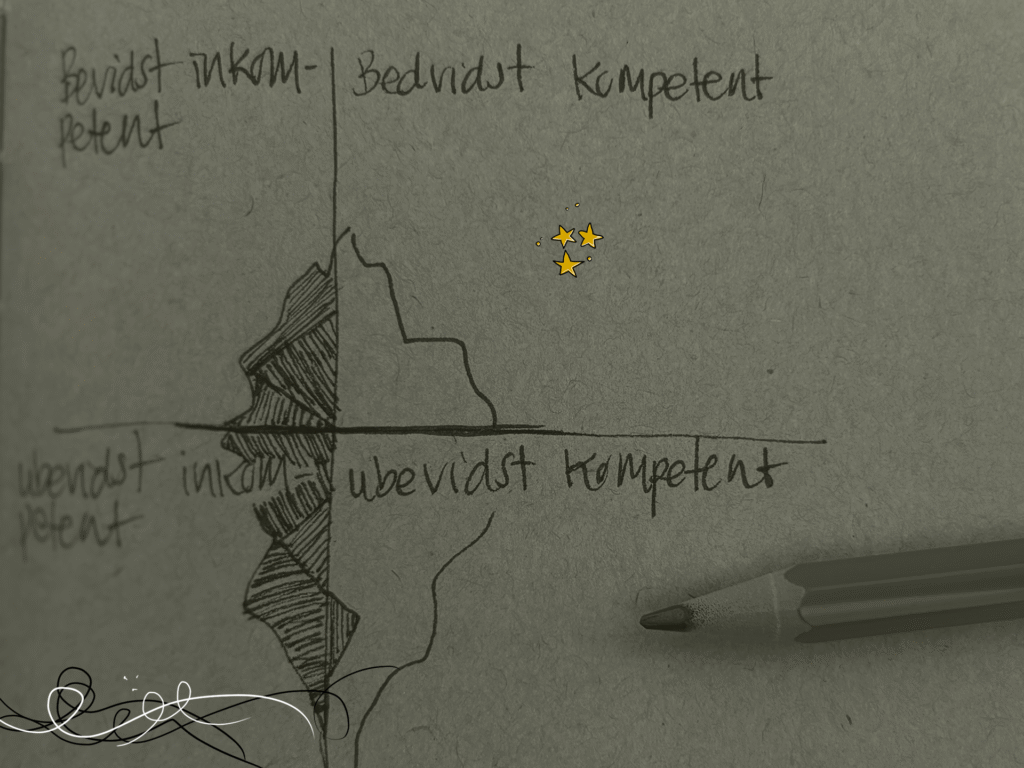 Bevidst inkom-
petent
Bedvidst Kompetent
ubevidst inkom-
petent
ubevidst Kompetent